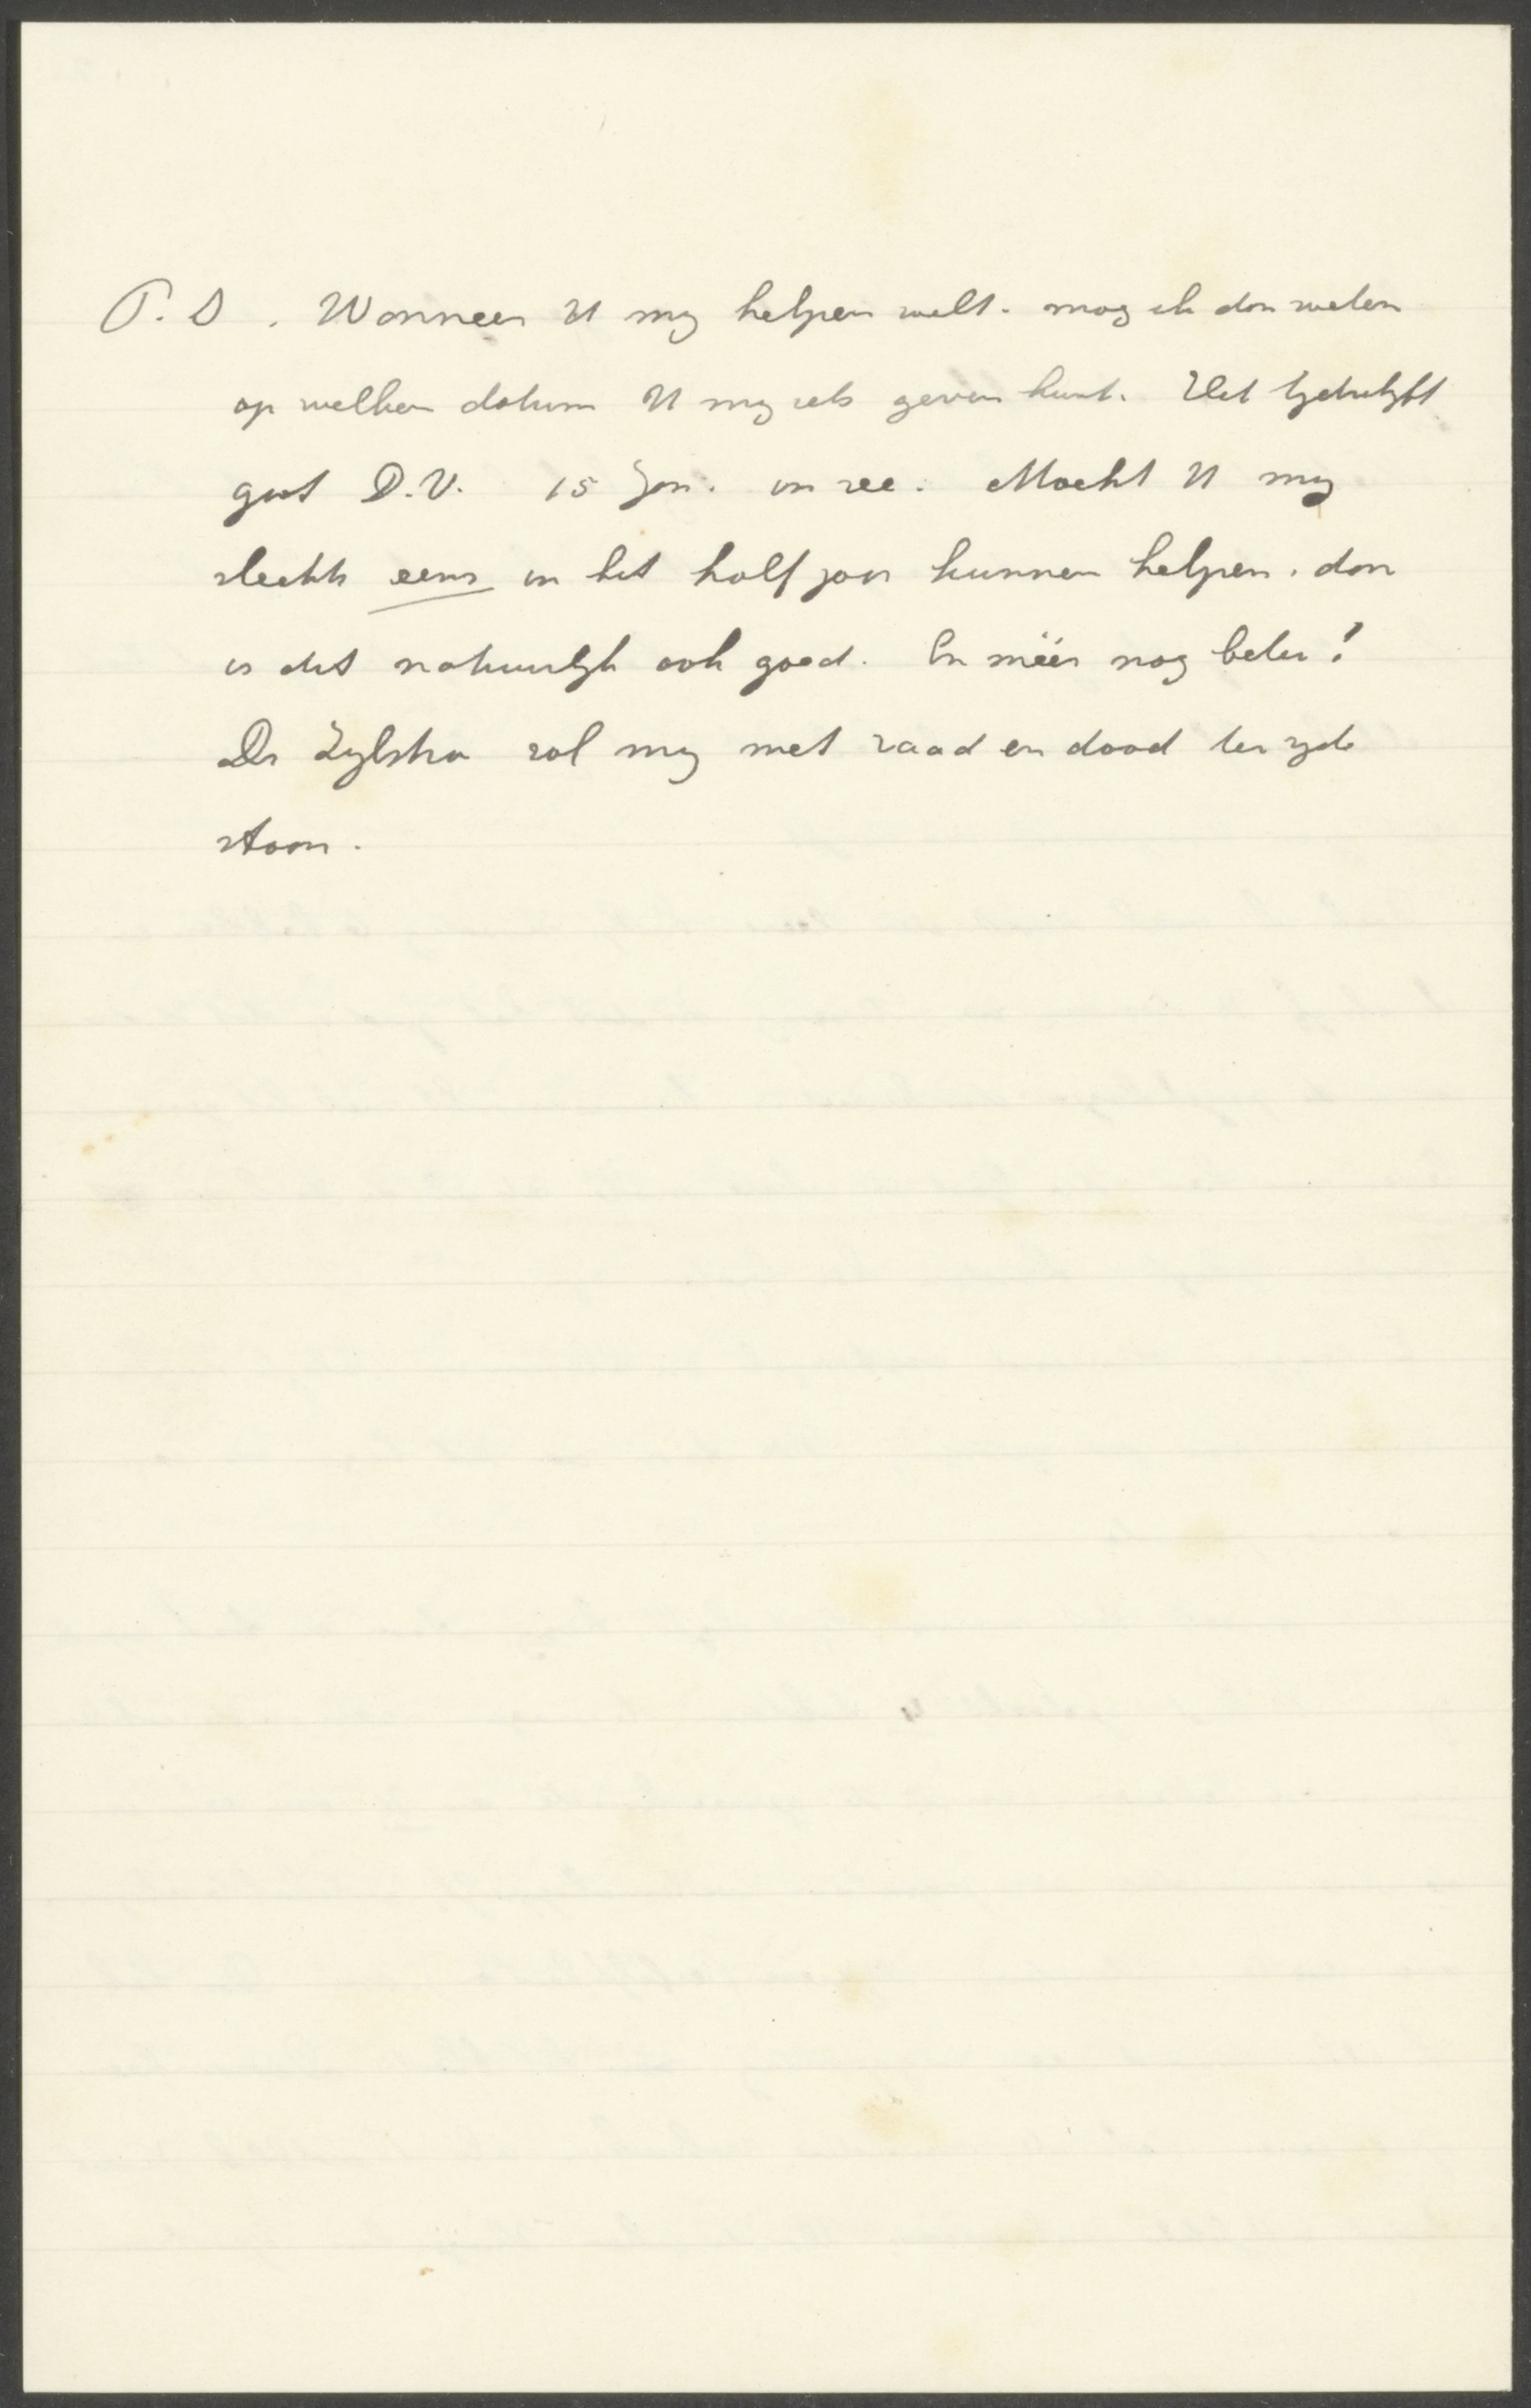 P.S. Wanneer U mij helpen wilt. mag ik dan weten
op welken datum U mij iets geven kunt. Het tijdschrift
gaat D.V. 15 Jan. in zee. Mocht U mij
slechts eens in het half jaar kunnen helpen. dan
is dat natuurlijk ook goed. En méér nog beter!
Dr Zijlstra zal mij met raad en daad ter zijde
staan.